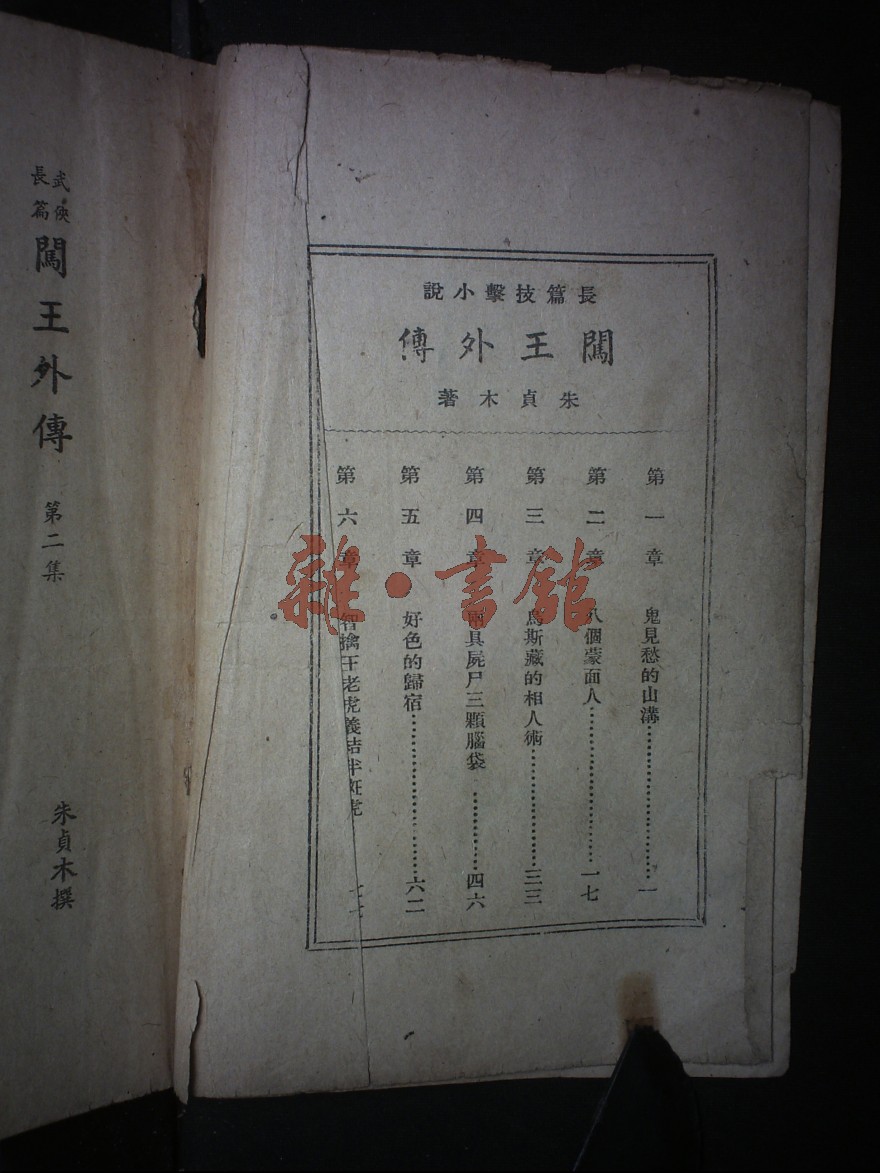 長篇技擊小說
闖王外傳
朱貞木著
第一章 鬼見愁的山溝……………………一
第二章 八個蒙面人……………………一七
第三章 烏斯藏的相人術………………三三
第四章 兩具屍尸三顆腦袋…………四六
第五章 好色的歸宿……………………六二
第六章 智擒王老虎義結半
武俠長篇 闖王外傳 第二集 朱貞木撰
雜·書館